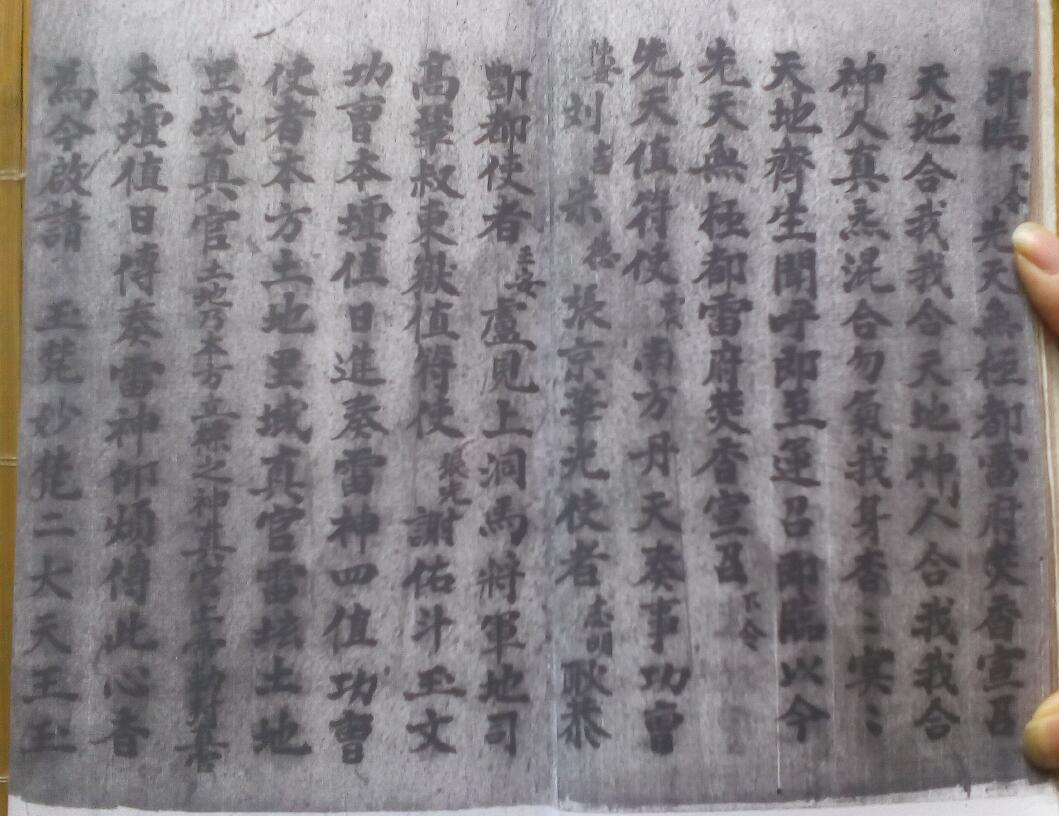 即臨下令先天無極都雷府焚香宣召
天地合我我合天地神人合我我合
神人真炁混合勿氣我身杳〻冥〻
天地齊生聞呼即至運召即臨以今
先天無極都雷府焚香宣召下令
先天值符使南方丹天奏事功曹
劉吉朱張京華光使者志明耿恭
都使者盧見上洞馬將軍地司
高翠叔東嶽值符使張光謝佑斗玉文
功曹本壇值日進奏雷神四值功曹
使者本方土地里域真官雷坛土地
里域真官土地乃本方立標之神真官上帝勅封
本壇值日傳奏雷神仰煩傳此心香
為今啟請玉梵妙梵二大天王玉